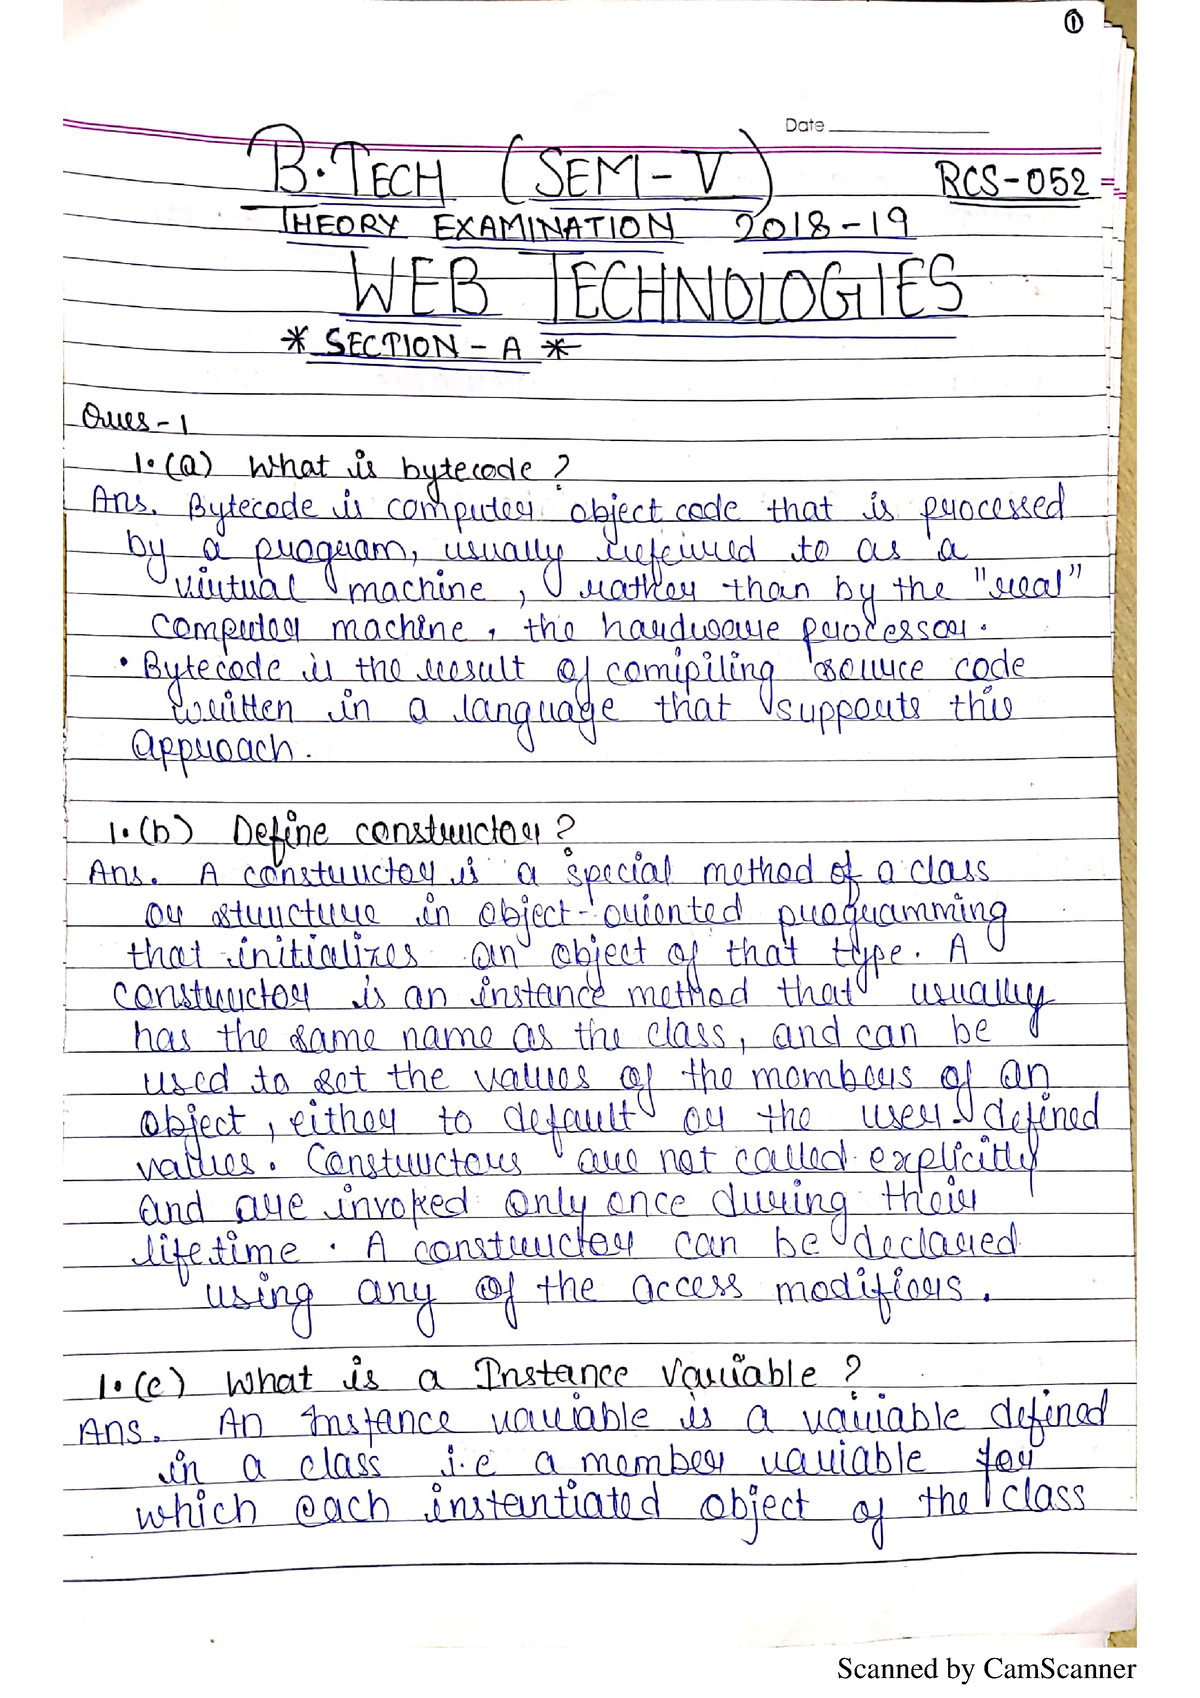 1
Date
B.TECH (SEM-V)
RCS-052
THEORY EXAMINATION 2018-19
WEB TECHNOLOGIES
* SECTION - A *
Ques-1
1.(a) What is bytecode ?
Ans. Bytecode is computer object code that is processed
by a program, usually referred to as a
virtual machine, rather than by the "real"
computer machine, the hardware processor.
• Bytecode is the result of comipiling source code
written in a language that supports this
approach.
1.(b) Define constructor ?
Ans. A constructor is a special method of a class
or structure in object-oriented programming
that initializes an object of that type. A
constructor is an instance method that usually
has the same name as the class, and can be
used to set the values of the members of an
object, either to default or the user-defined
values. Constructors are not called explicitly
and are invoked only once during their
lifetime. A constructor can be declared
using any of the access modifiers.
1.(c) What is a Instance Variable ?
Ans. An Instance variable is a variable defined
in a class i.e a member variable for
which each instantiated object of the class
Scanned by CamScanner